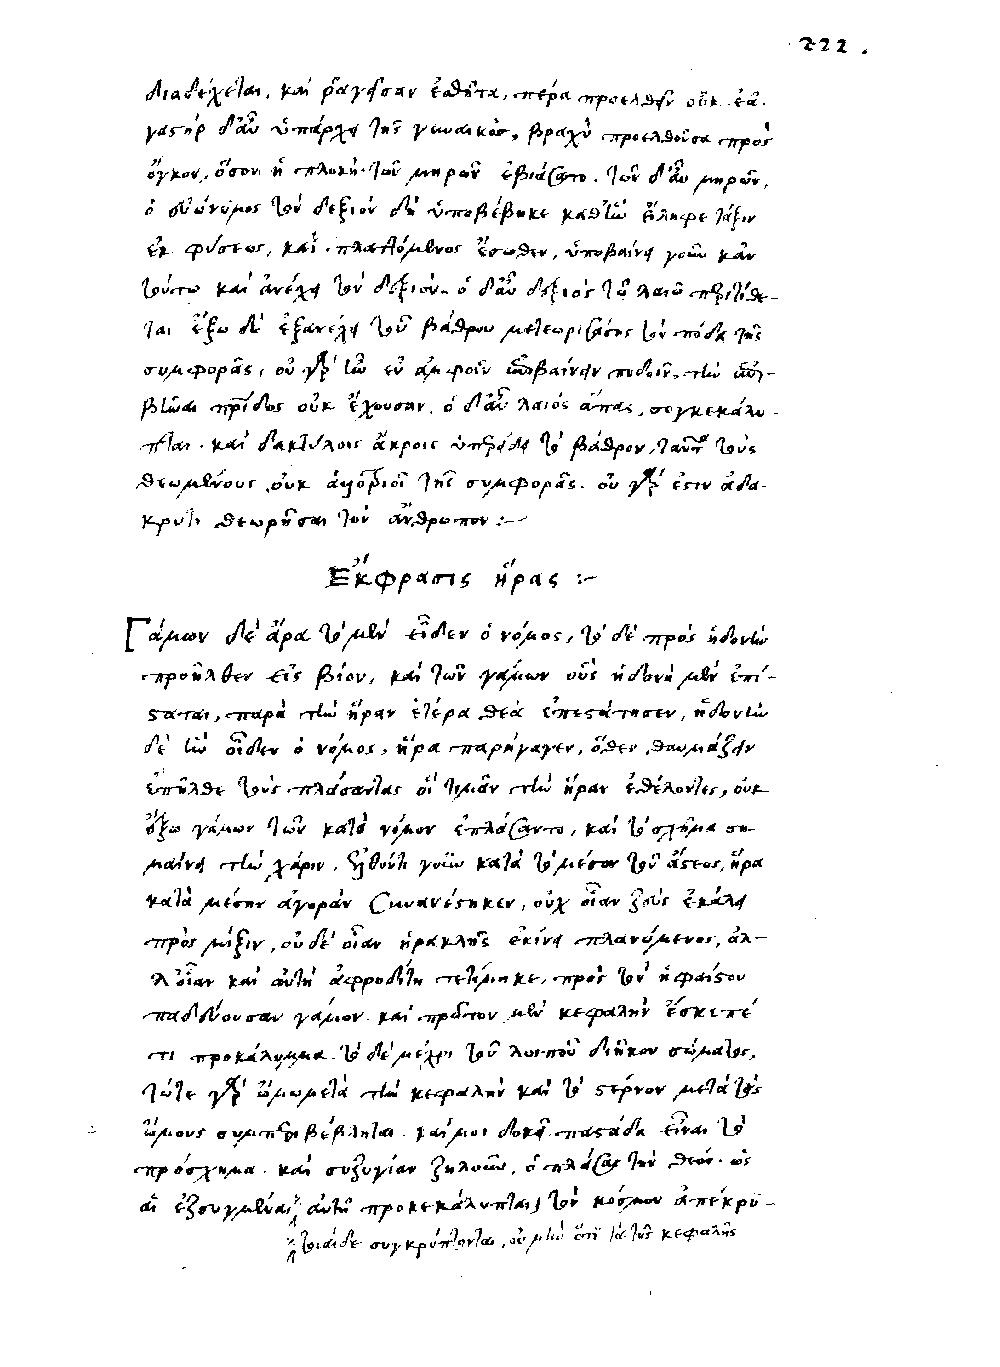 222.
διαδέχεται, καὶ ῥαγεῖσαν ἐσθῆτα, πέρα προελθεῖν οὐκ ἐᾷ.
γαστὴρ δ' αὖ ὑπάρχει τῆς γυναικὸς, βραχὺ προελθοῦσα πρὸς
ὄγκον, ὅσον ἡ πλοκὴ τῶν μηρῶν ἐβιάσατο. τῶν δ' αὖ μηρῶν,
ὁ εὐώνυμος τὸν δεξιὸν δὴ ὑποβέβηκε καθ' ἣν εἴληφε τάξιν
ἐκ φύσεως, καὶ πλαττόμενος ἔσωθεν, ὑποβαίνει γοῦν κἂν
τούτω καὶ ἀνέχει τὸν δεξιόν. ὁ δ' αὖ δεξιὸς τῷ λαιῷ περιτίθε-
ται ἔξω δὲ ἐξανέχει τοῦ βάθρου μετεωριζούσης τὸν πόδα τῆς
συμφορᾶς, οὐ γὰρ ἦν ἐν ἀμφοῖν βαίνειν ποδοῖν, τὴν
οὐκ ἔχουσαν. ὁ δ' αὖ λαιὸς ἅπας, συγκεκάλυ-
πται. καὶ δακτύλοις ἄκροις τὸ βάθρον, τοὺς
θεωμένους οὐκ τῆς συμφορᾶς. οὐ γάρ ἐστιν ἀδα-
κρυτὶ θεωρῆσαι τὸν ἄνθρωπον :~
Ἔκφρασις ἥρας :~
Γάμων δὲ ἄρα τὸ μὲν εἶδεν ὁ νόμος, τὸ δὲ πρὸς ἡδονὴν
προῆλθεν εἰς βίον, καὶ τῶν γάμων οὓς ἡδονὴ μὲν ἐπί-
σταται, παρὰ τὴν ἥραν ἑτέρα θεὰ ἐπεστάτησεν, ἡδονὴν
δὲ ἣν οἶδεν ὁ νόμος, ἥρα παρήγαγεν, ὅθεν θαυμάζειν
ἐπῆλθε τοὺς πλάσαντας οἳ τιμᾶν τὴν ἥραν ἐθέλοντες, οὐκ
ἔξω γάμων τῶν κατὰ νόμον ἐπλάσαντο, καὶ τὸ σχῆμα ση-
μαίνει τὴν χάριν. γοῦν κατὰ τὸ μέσον τοῦ ἄστεος, ἥρα
κατὰ μέσην ἀγορὰν συνανέστηκεν, οὐχ οἵαν ζεὺς ἐκάλει
πρὸς μῖξιν, οὐδὲ οἵαν ἡρακλῆς ἐκίνει πλανώμενος, ἀλ-
λ' οἵαν καὶ αὐτὴ ἀφροδίτη τετίμηκε, πρὸς τὸν ἡφαίστου
παιδεύουσαν γάμον. καὶ πρῶτον μὲν κεφαλὴν ἔσκεπέ
τι προκάλυμμα. τὸ δὲ μέχρι τοῦ λοιποῦ διῆκον σώματος,
τότε γὰρ ὤμω μετὰ τὴν κεφαλὴν καὶ τὸ στέρνον μετὰ τοὺς
ὤμους συμπεριβέβληται. καί μοι δοκεῖ παστάδα εἶναι τὸ
πρόσχημα. καὶ συζυγίαν ζηλοῦν, ὁ πλάσας τὴν θεόν. ὡς
αἱ ἐζευγμέναι αὐτὴ προκεκάλυπται, τὸν κόσμον ἀπέκρυ-
συγκρύπτονται, οὐ μὴν ἔτι τὰ τῆς κεφαλῆς